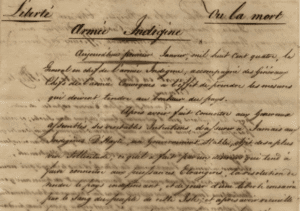 Liberté Ou la mort
Armée Indigène
Aujourd'hui premier Janvier, mil huit cent quatre, le
Général en chef de l'armée Indigène, accompagné des Généraux
Chefs de l'armée, Convoqués à l'effet de prendre les mesures
qui doivent tendre au bonheur du pays.
Après avoir fait connaître aux Généraux
assemblés ses véritables intentions, d'assurer à Jamais aux
Indigènes d'Hayti, un Gouvernement Stable, objet de sa plus
vive Sollicitude, ce qu'il a fait par un discours qui tend à
faire connaître aux puissances Etrangères, la résolution de
rendre le pays indépendant, et de jouir d'une liberté consacrée
par le Sang du peuple de cette Isle; et après avoir recueilli